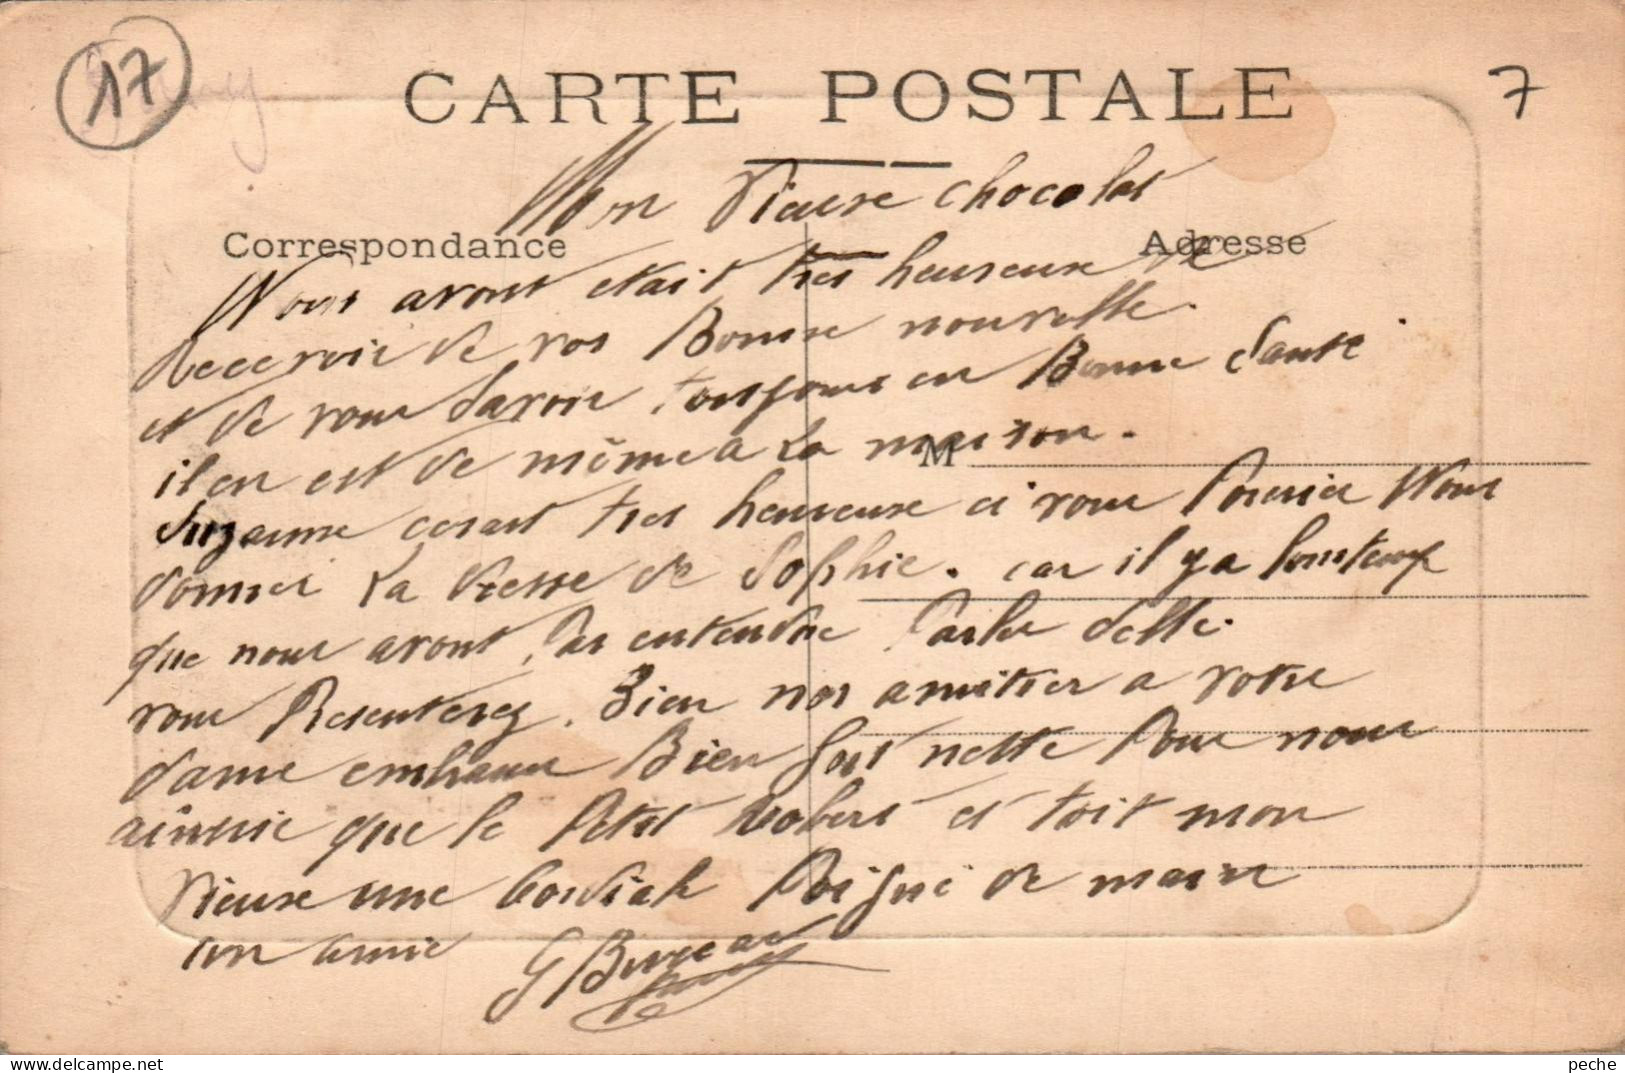 17
CARTE POSTALE
7
Mon Vieuxe chocolat
Correspondance
Adresse
Nous avont etait tres heureuxe de
Recevoir de vos Bonne nouvelle.
et de vous Savoir toujours en Bonne Santé
il en est de même a La maison.
M
Suzanne cerait tres heureuse ci vous Pouvier Nous
donner La dresse de Sophie. car il y a lontemp
que nous avont Pas entendre Parler delle.
vous Presenterez Bien nos amitier a votre
dame embrasser Bien fort nelle Pour nous
ainssie que le Petit Robert et toit mon
Vieuxe une Cordiale Poigné de main
un amie G Bureau
peche